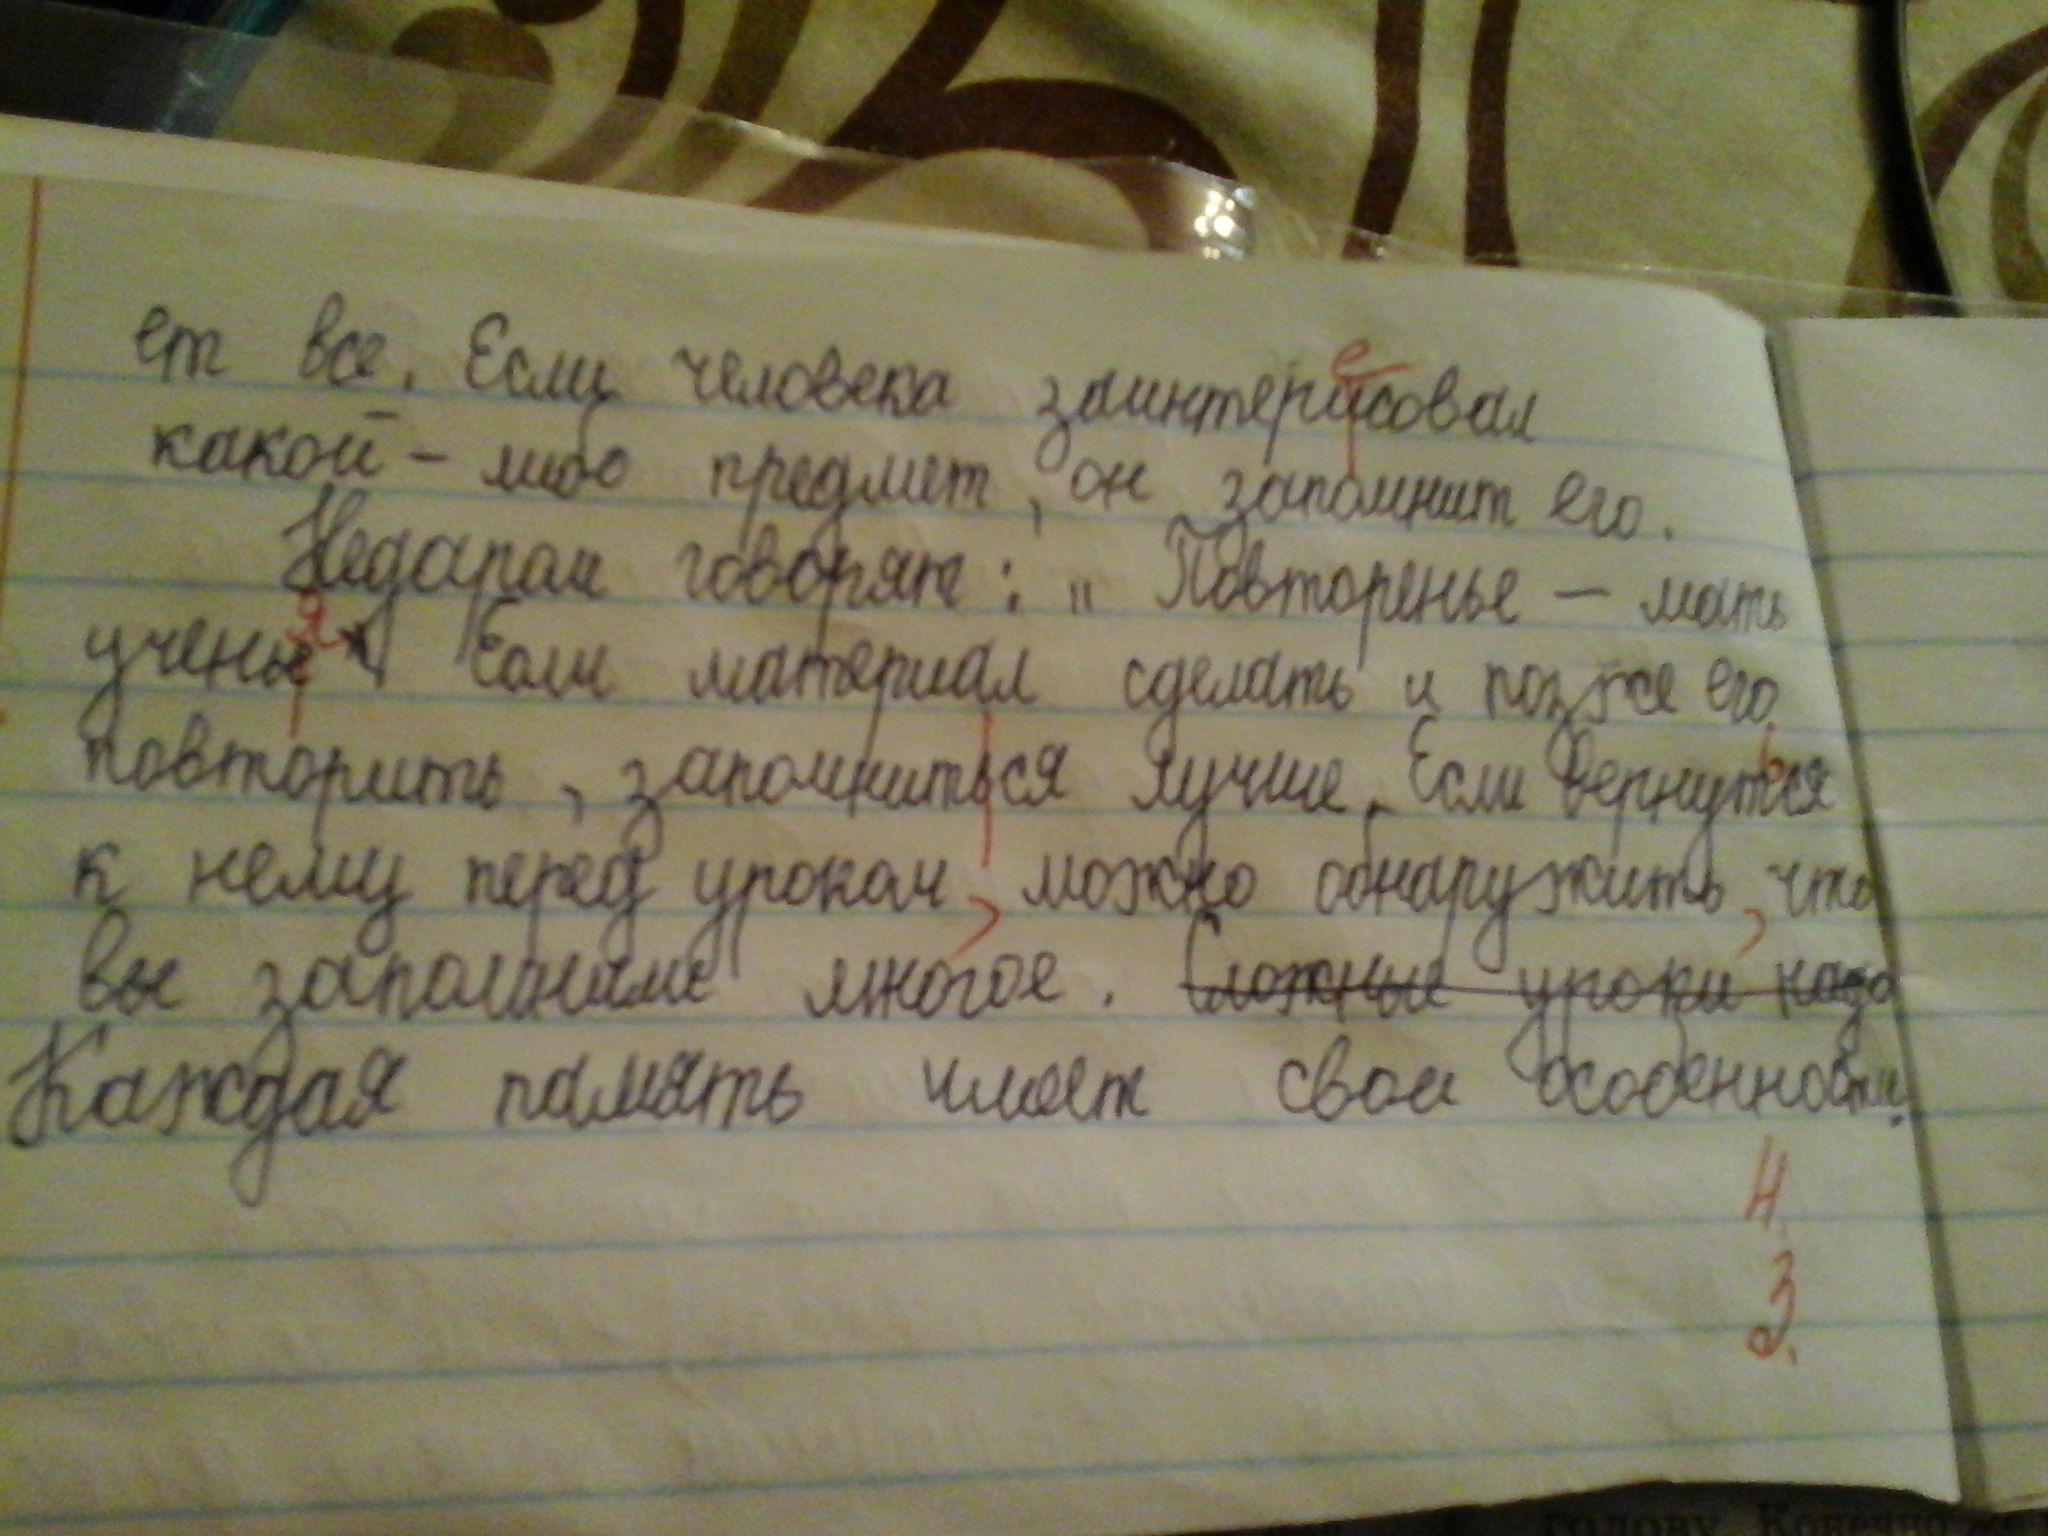 ет все. Если человека заинтерисовал
е
какой - либо предмет, он запомнит его.
Недаром говорят: „ Повторенье — мать
ученье". Если материал сделать и позже его
я
повторить, запомниться лучше. Если вернуться
ь
к нему перед уроком, можно обнаружить, что
вы запомнили многое. Сложные уроки надо
Каждая память имеет свои особенности.
4.
3
голову. Конечно